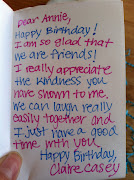 Dear Annie,
Happy Birthday!
I am so glad that
we are friends!
I really appreciate
the kindness you
have shown to me.
We can laugh really
easily together and
I just have a good
time with you.
Happy Birthday,
Claire Casey